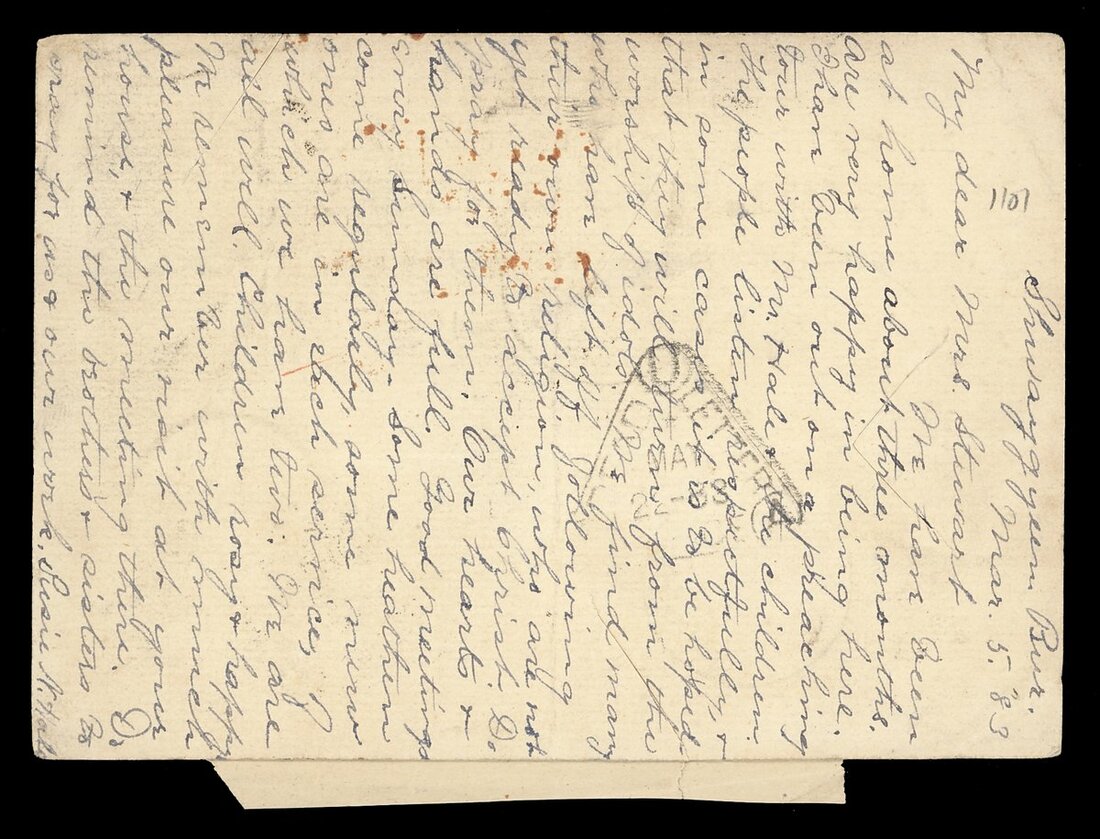 Shwaygyeen Bur.
Mar. 5. 83
1101
My dear Mrs. Stewart
We have been
at home about three months.
Are very happy in being here.
I have been out on a preaching
tour with Mr. Hale & the children.
The people listen respectfully, &
in some cases it is to be hoped
that they will turn from the
worship of idols. We find many
who have left off following
their own religion, who are not
yet ready to accept Christ. Do
pray for them. Our hearts &
hands are full. Good meetings
every Sunday. Some heathen
come regularly, some new
ones are in each service, of
which we have two. We are
all well. Children rosy & happy
We remember with much
pleasure our visit at your
house, & the meeting there. Do
remind the brothers & sisters to
pray for us & our work. Susie H. Hale
MA
22-83